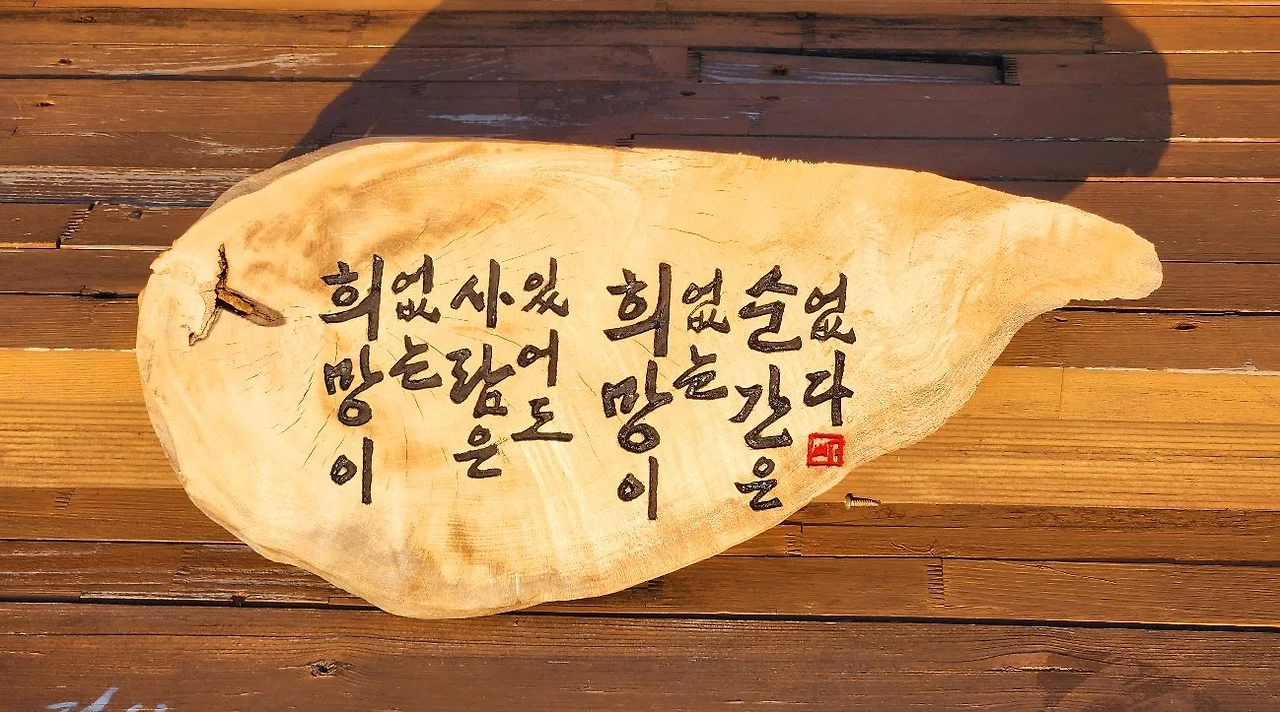 희망이
없는
사람은
있어도
희망이
없는
순간은
없다